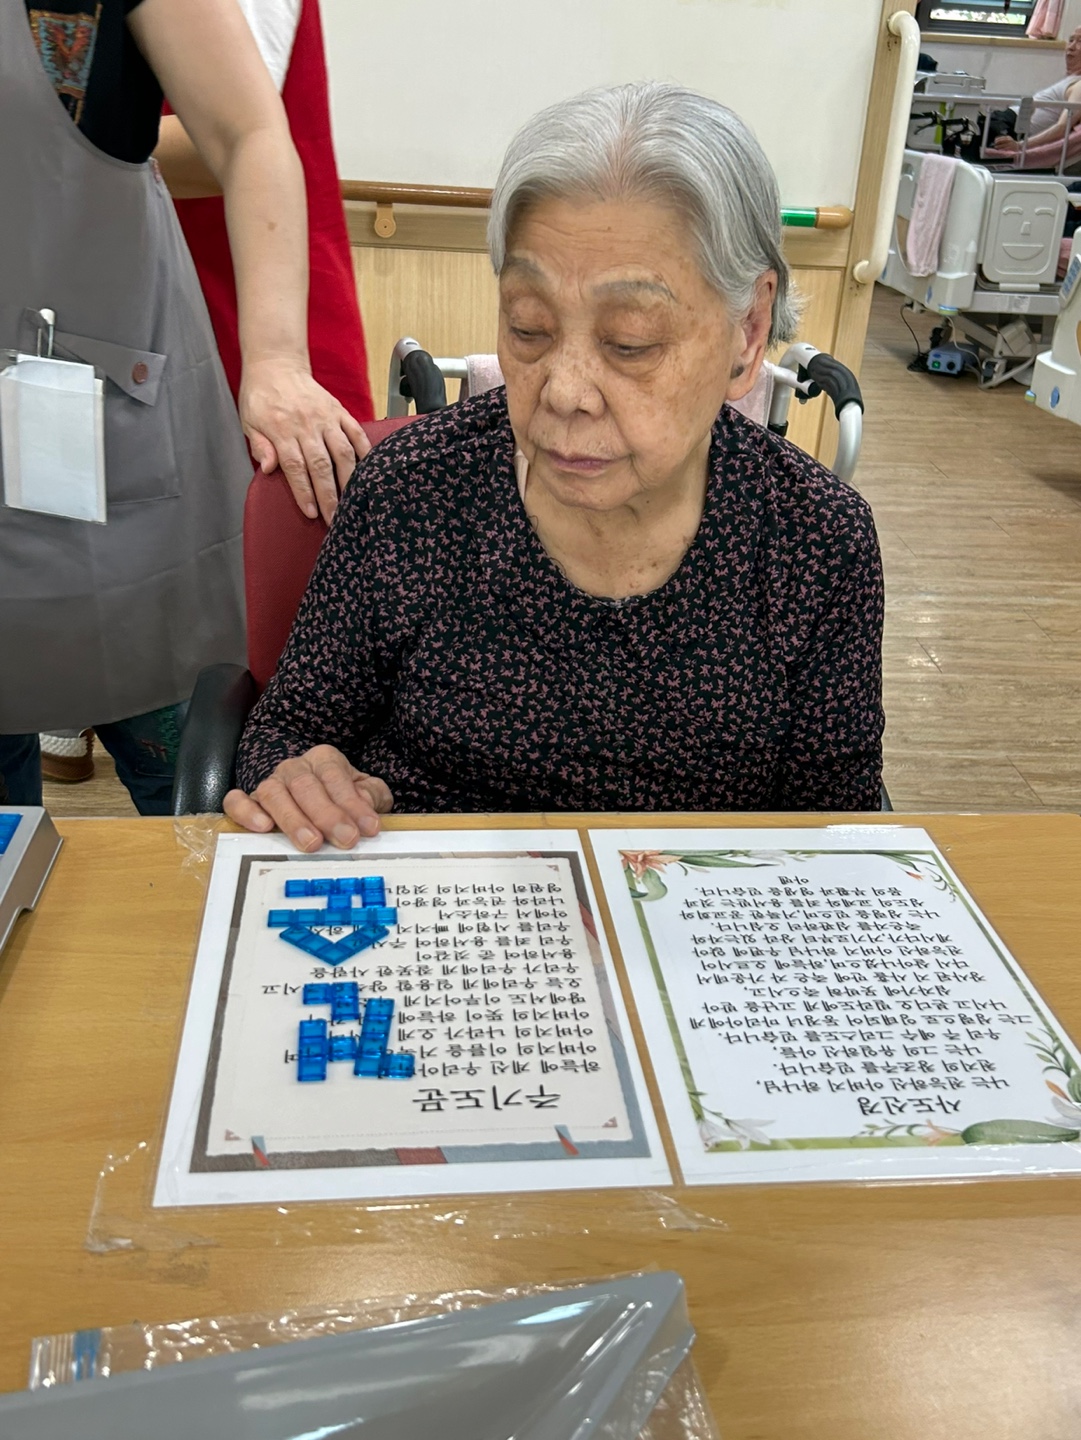 주기도문
하늘에 계신 우리 아버
아버지의 이름을
아버지의 나라가 오게
아버지의 뜻이 하늘에
땅에서도 이루어지게
오늘 우리에게 일용할 시고
우리가 우리에게 잘못한 사람을
용서하여 준 것같이
우리 죄를 용서하여
우리를 시험에 빠지지
악에서 구하소서
나라와 권능과 영광이
영원히 아버지의 것입
사도신경
나는 전능하신 아버지 하나님,
천지의 창조주를 믿습니다.
나는 그의 유일하신 아들,
우리 주 예수 그리스도를 믿습니다.
그는 성령으로 잉태되어 동정녀 마리아에게
나시고 본디오 빌라도에게 고난을 받아
십자가에 못박혀 죽으시고,
장사된 지 사흘 만에 죽은 자 가운데서
다시 살아나셨으며,하늘에 오르시어
전능하신 아버지 하나님 우편에 앉아
계시다가,거기로부터 살아 있는자와
죽은자를 심판하러 오십니다.
나는 성령을 믿으며 거룩한 공교회와
성도의 교제와 죄를 용서받는 것과
몸의 부활과 영생을 믿습니다.
아멘